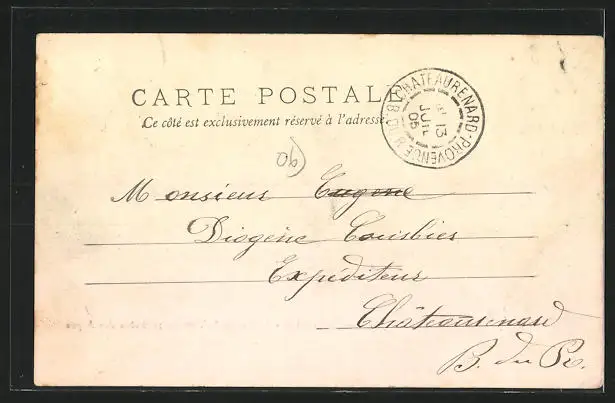 CARTE POSTALE
Ce côté est exclusivement réservé à l'adresse.
CHATEAURENARD-PROVENCE
13
JUIL
05
90
Monsieur Eugene
Diogène Courbier
Expéditeur
Châteaurenard
B. du R.